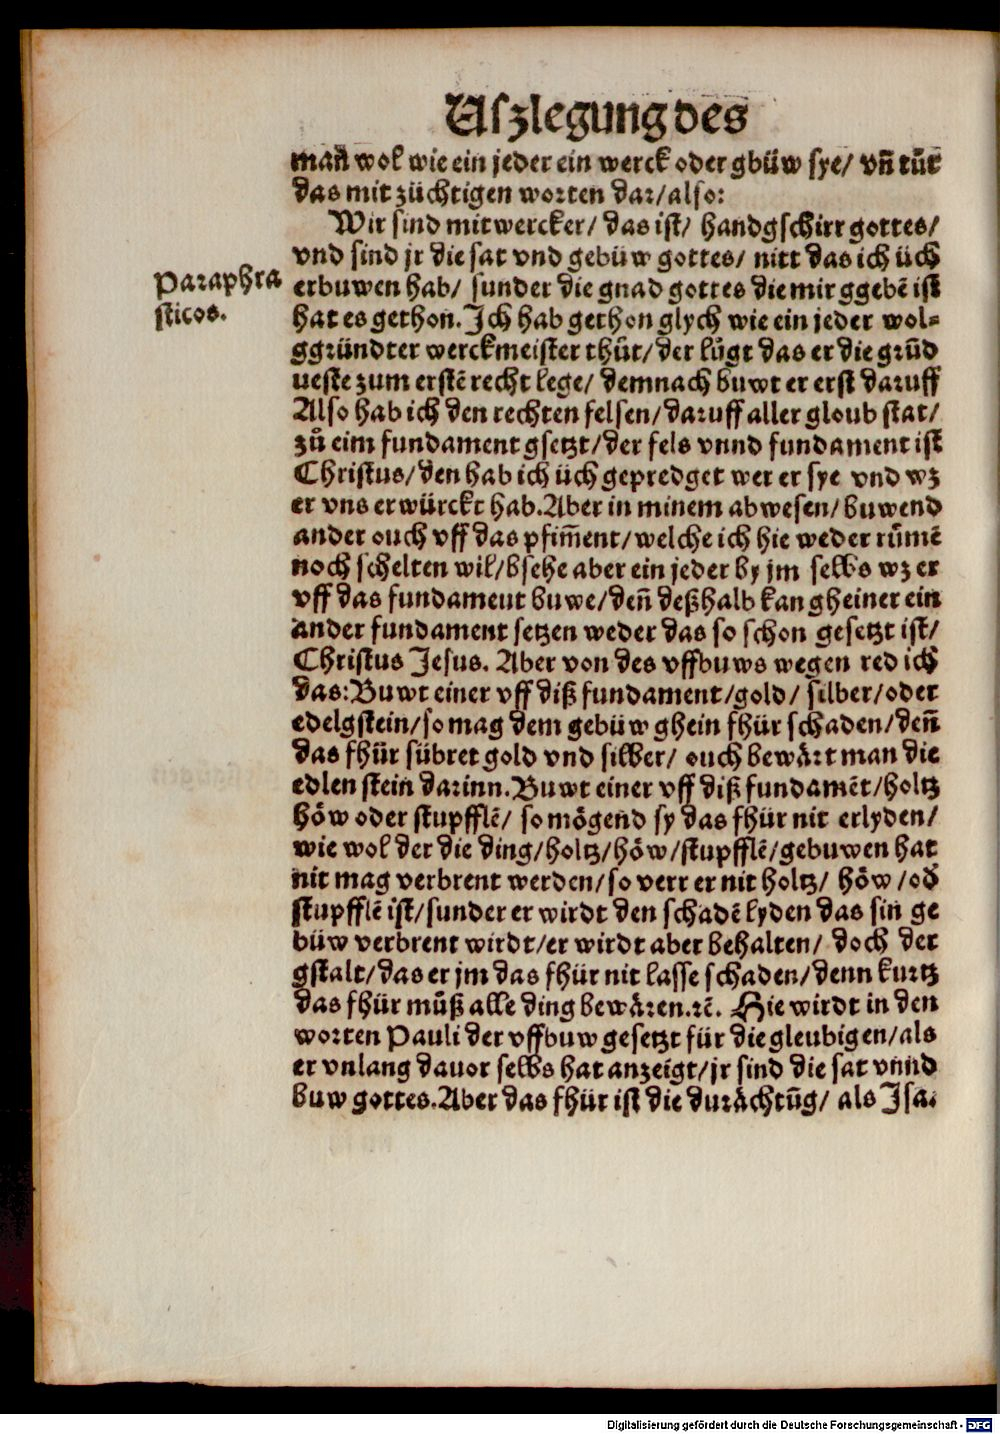 Uſzlegung des
man wol wie ein jeder ein werck oder gbüw ſye/ vñ tůt
das mit züchtigen worten dar/alſo:
Wir ſind mitwercker/ das iſt/ handgſchirr gottes/
vnd ſind jr die ſat vnd gebüw gottes/ nitt das ich üch
Paraphra
ſticos.
erbuwen hab/ ſunder die gnad gottes die mir ggebē iſt
hat es gethon. Ich hab gethon glych wie ein jeder wol⸗
ggründter werckmeiſter thůt/ der lůgt das er die grūd
ueſte zum erſtē recht lege/ demnach buwt er erſt daruff
Alſo hab ich den rechten felſen/ daruff aller gloub ſtat/
zů eim fundament gſetzt/ der fels vnnd fundament iſt
Chriſtus/ den hab ich üch gepredget wer er ſye vnd wz
er vns erwürckt hab. Aber in minem abweſen/ buwend
ander ouch vff das pfim̄ent/ welche ich hie weder růmē
noch ſchelten wil/ bſehe aber ein jeder by jm ſelbs wz er
vff das fundament buwe/ deñ deßhalb kan gheiner ein
ander fundament ſetzen weder das ſo ſchon geſetzt iſt/
Chriſtus Jeſus. Aber von des vffbuws wegen red ich
das: Buwt einer vff diß fundament/ gold/ ſilber/ oder
edelgſtein/ ſo mag dem gebüw ghein fhür ſchaden/ deñ
das fhür ſübret gold vnd ſilber/ ouch bewärt man die
edlen ſtein darinn. Buwt einer vff diß fundamēt/ holtz
höw oder ſtupfflē/ ſo mögend ſy das fhür nit erlyden/
wie wol der die ding/ holtz/ höw/ ſtupfflē/ gebuwen hat
nit mag verbrent werden/ ſo verr er nit holtz/ höw /od̄
ſtupfflē iſt/ ſunder er wirdt den ſchadē lyden das ſin ge
büw verbrent wirdt/ er wirdt aber behalten/ doch der
gſtalt/ das er jm das fhür nit laſſe ſchaden/ denn kurtz
das fhür můß alle ding bewären.ꝛc̄. Hie wirdt in den
worten Pauli der vffbuw geſetzt für die gleubigen/ als
er vnlang dauor ſelbs hat anzeigt/ jr ſind die ſat vnnd
buw gottes. Aber das fhür iſt die durächtūg/ als Jſa.
Digitalisierung gefördert durch die Deutsche Forschungsgemeinschaft - DFG